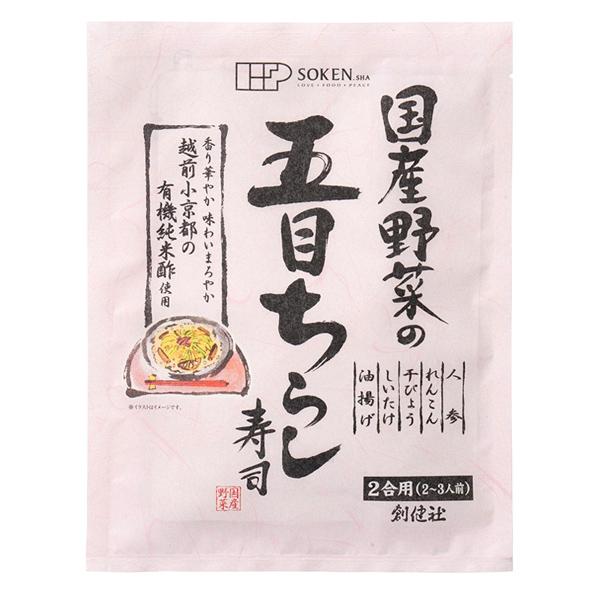 SOKEN.SHA
LOVE・FOOD・PEACE
国産野菜の
五目ちらし
寿司
香り華やか 味わいまろやか
越前小京都の
有機純米酢使用
※イラストはイメージです。
人参
れんこん
干びょう
しいたけ
油揚げ
国産
野菜
2合用(2~3人前)
創健社